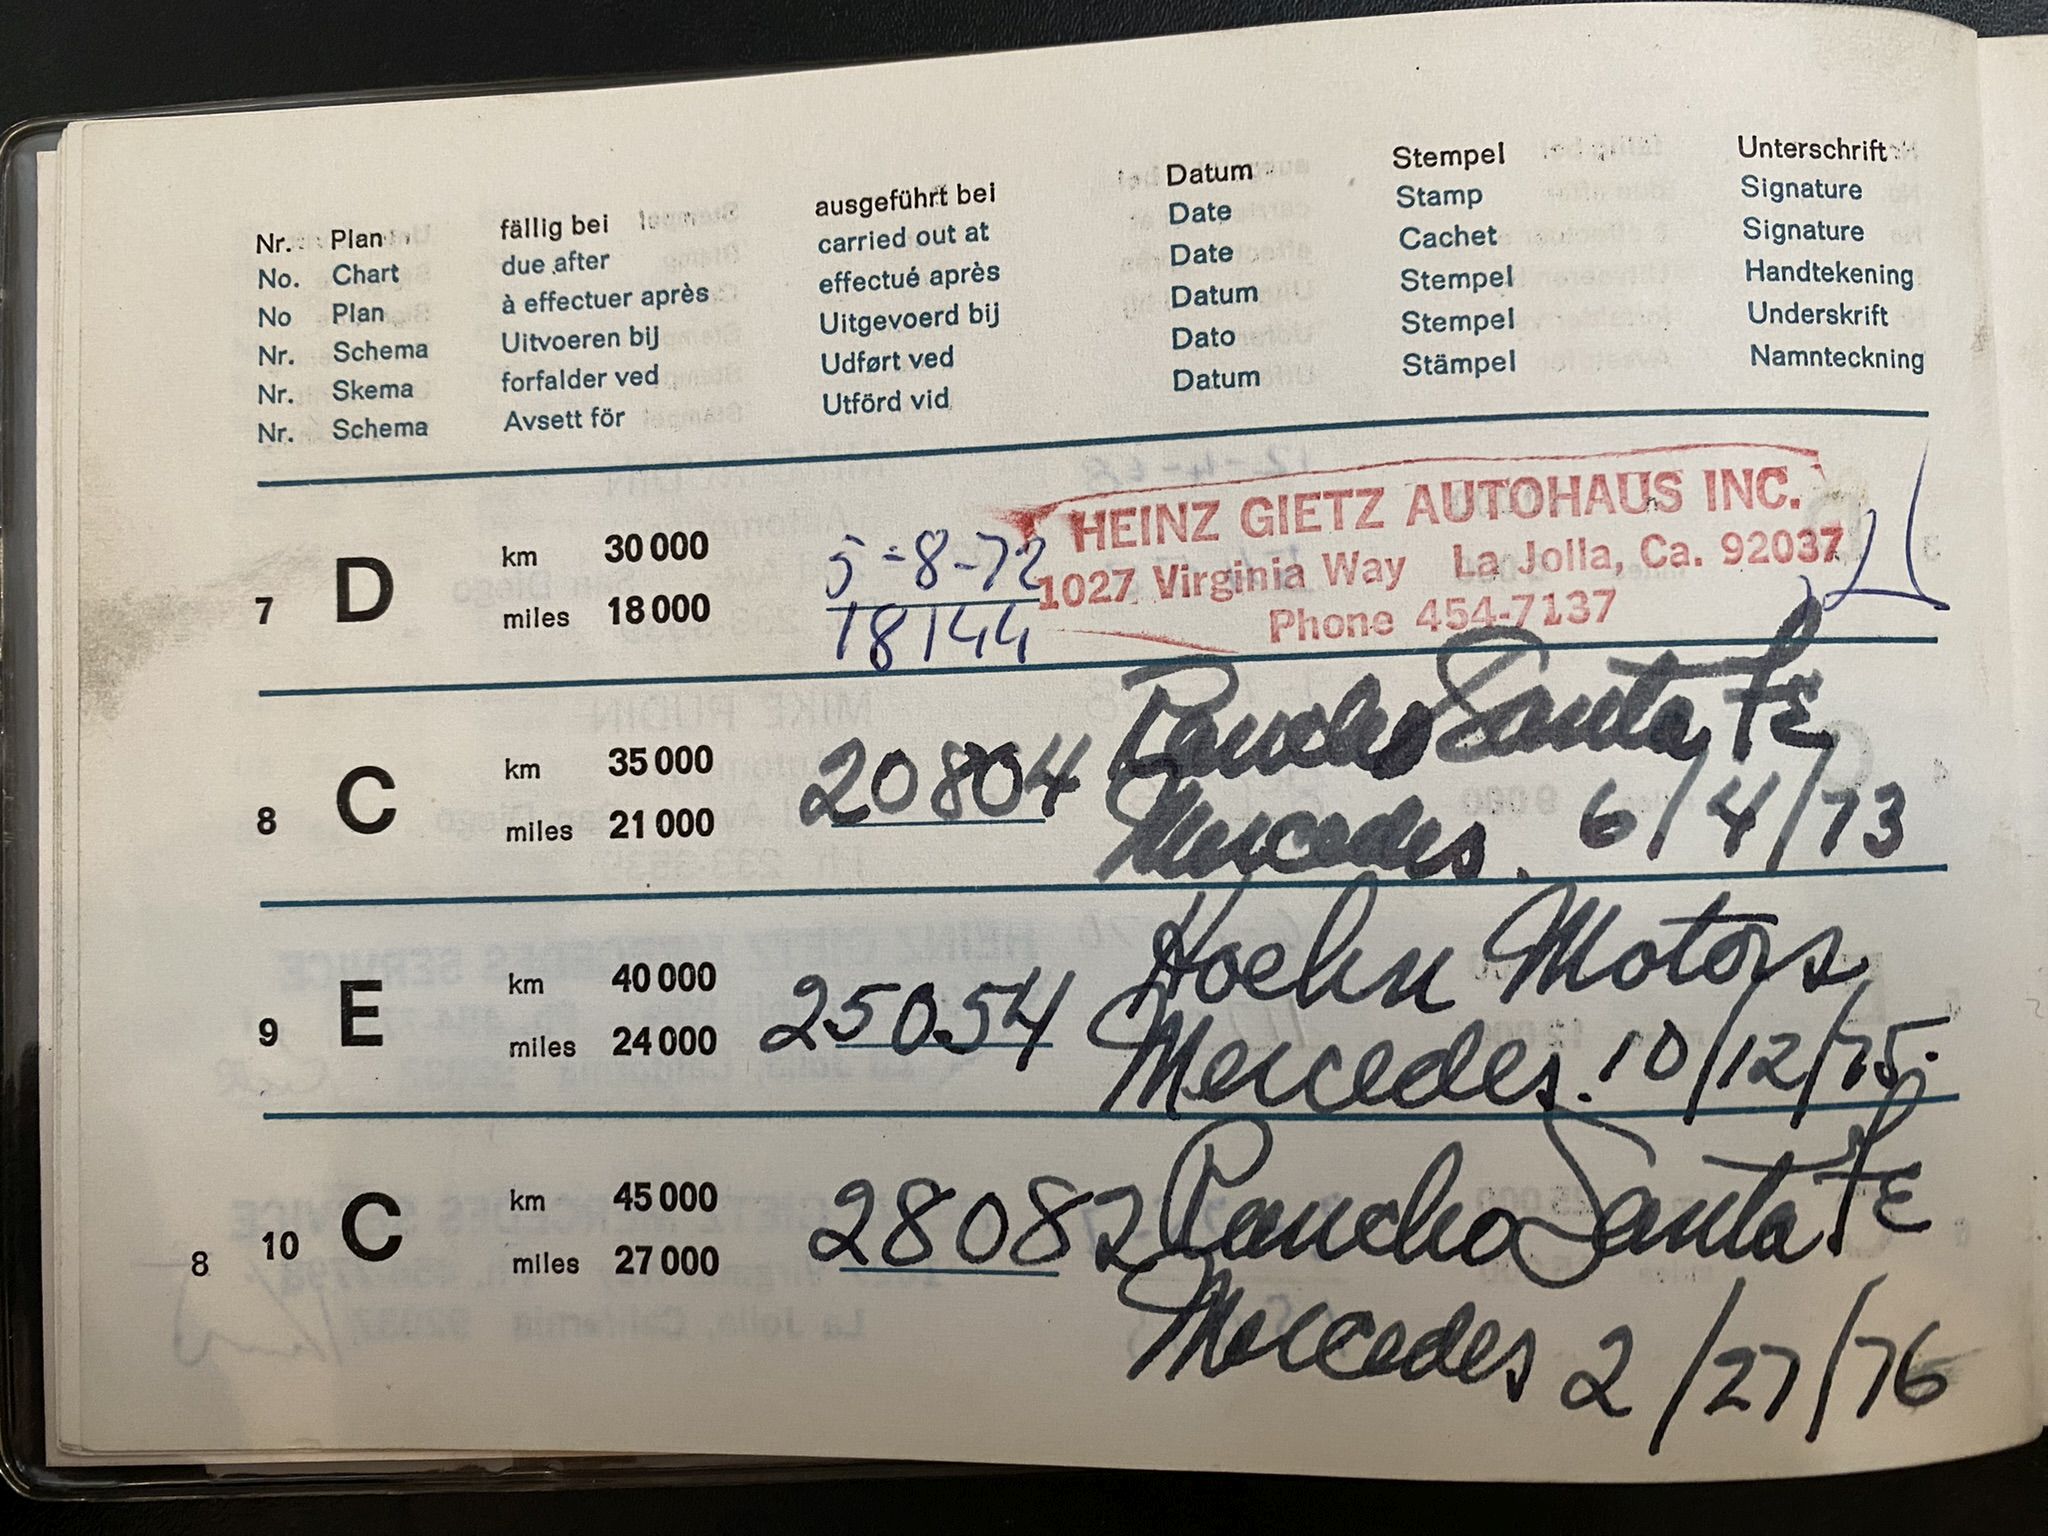 Nr. Plan fällig bei ausgeführt bei Datum Stempel Unterschrift
No. Chart due after carried out at Date Stamp Signature
No Plan à effectuer après effectué après Date Cachet Signature
Nr. Schema Uitvoeren bij Uitgevoerd bij Datum Stempel Handtekening
Nr. Skema forfalder ved Udført ved Dato Stempel Underskrift
Nr. Schema Avsett för Utförd vid Datum Stämpel Namnteckning
HEINZ GIETZ AUTOHAUS INC.
1027 Virginia Way La Jolla, Ca. 92037
Phone 454-7137
7 D km 30 000 5-8-72
miles 18 000 18144
8 C km 35 000 20804 Rancho Santa Fe
miles 21 000 Mercedes. 6/4/73
9 E km 40 000 25054 Hoehn Motors
miles 24 000 Mercedes. 10/12/75.
10 C km 45 000 28082 Rancho Santa Fe
miles 27 000 Mercedes 2/27/76
8